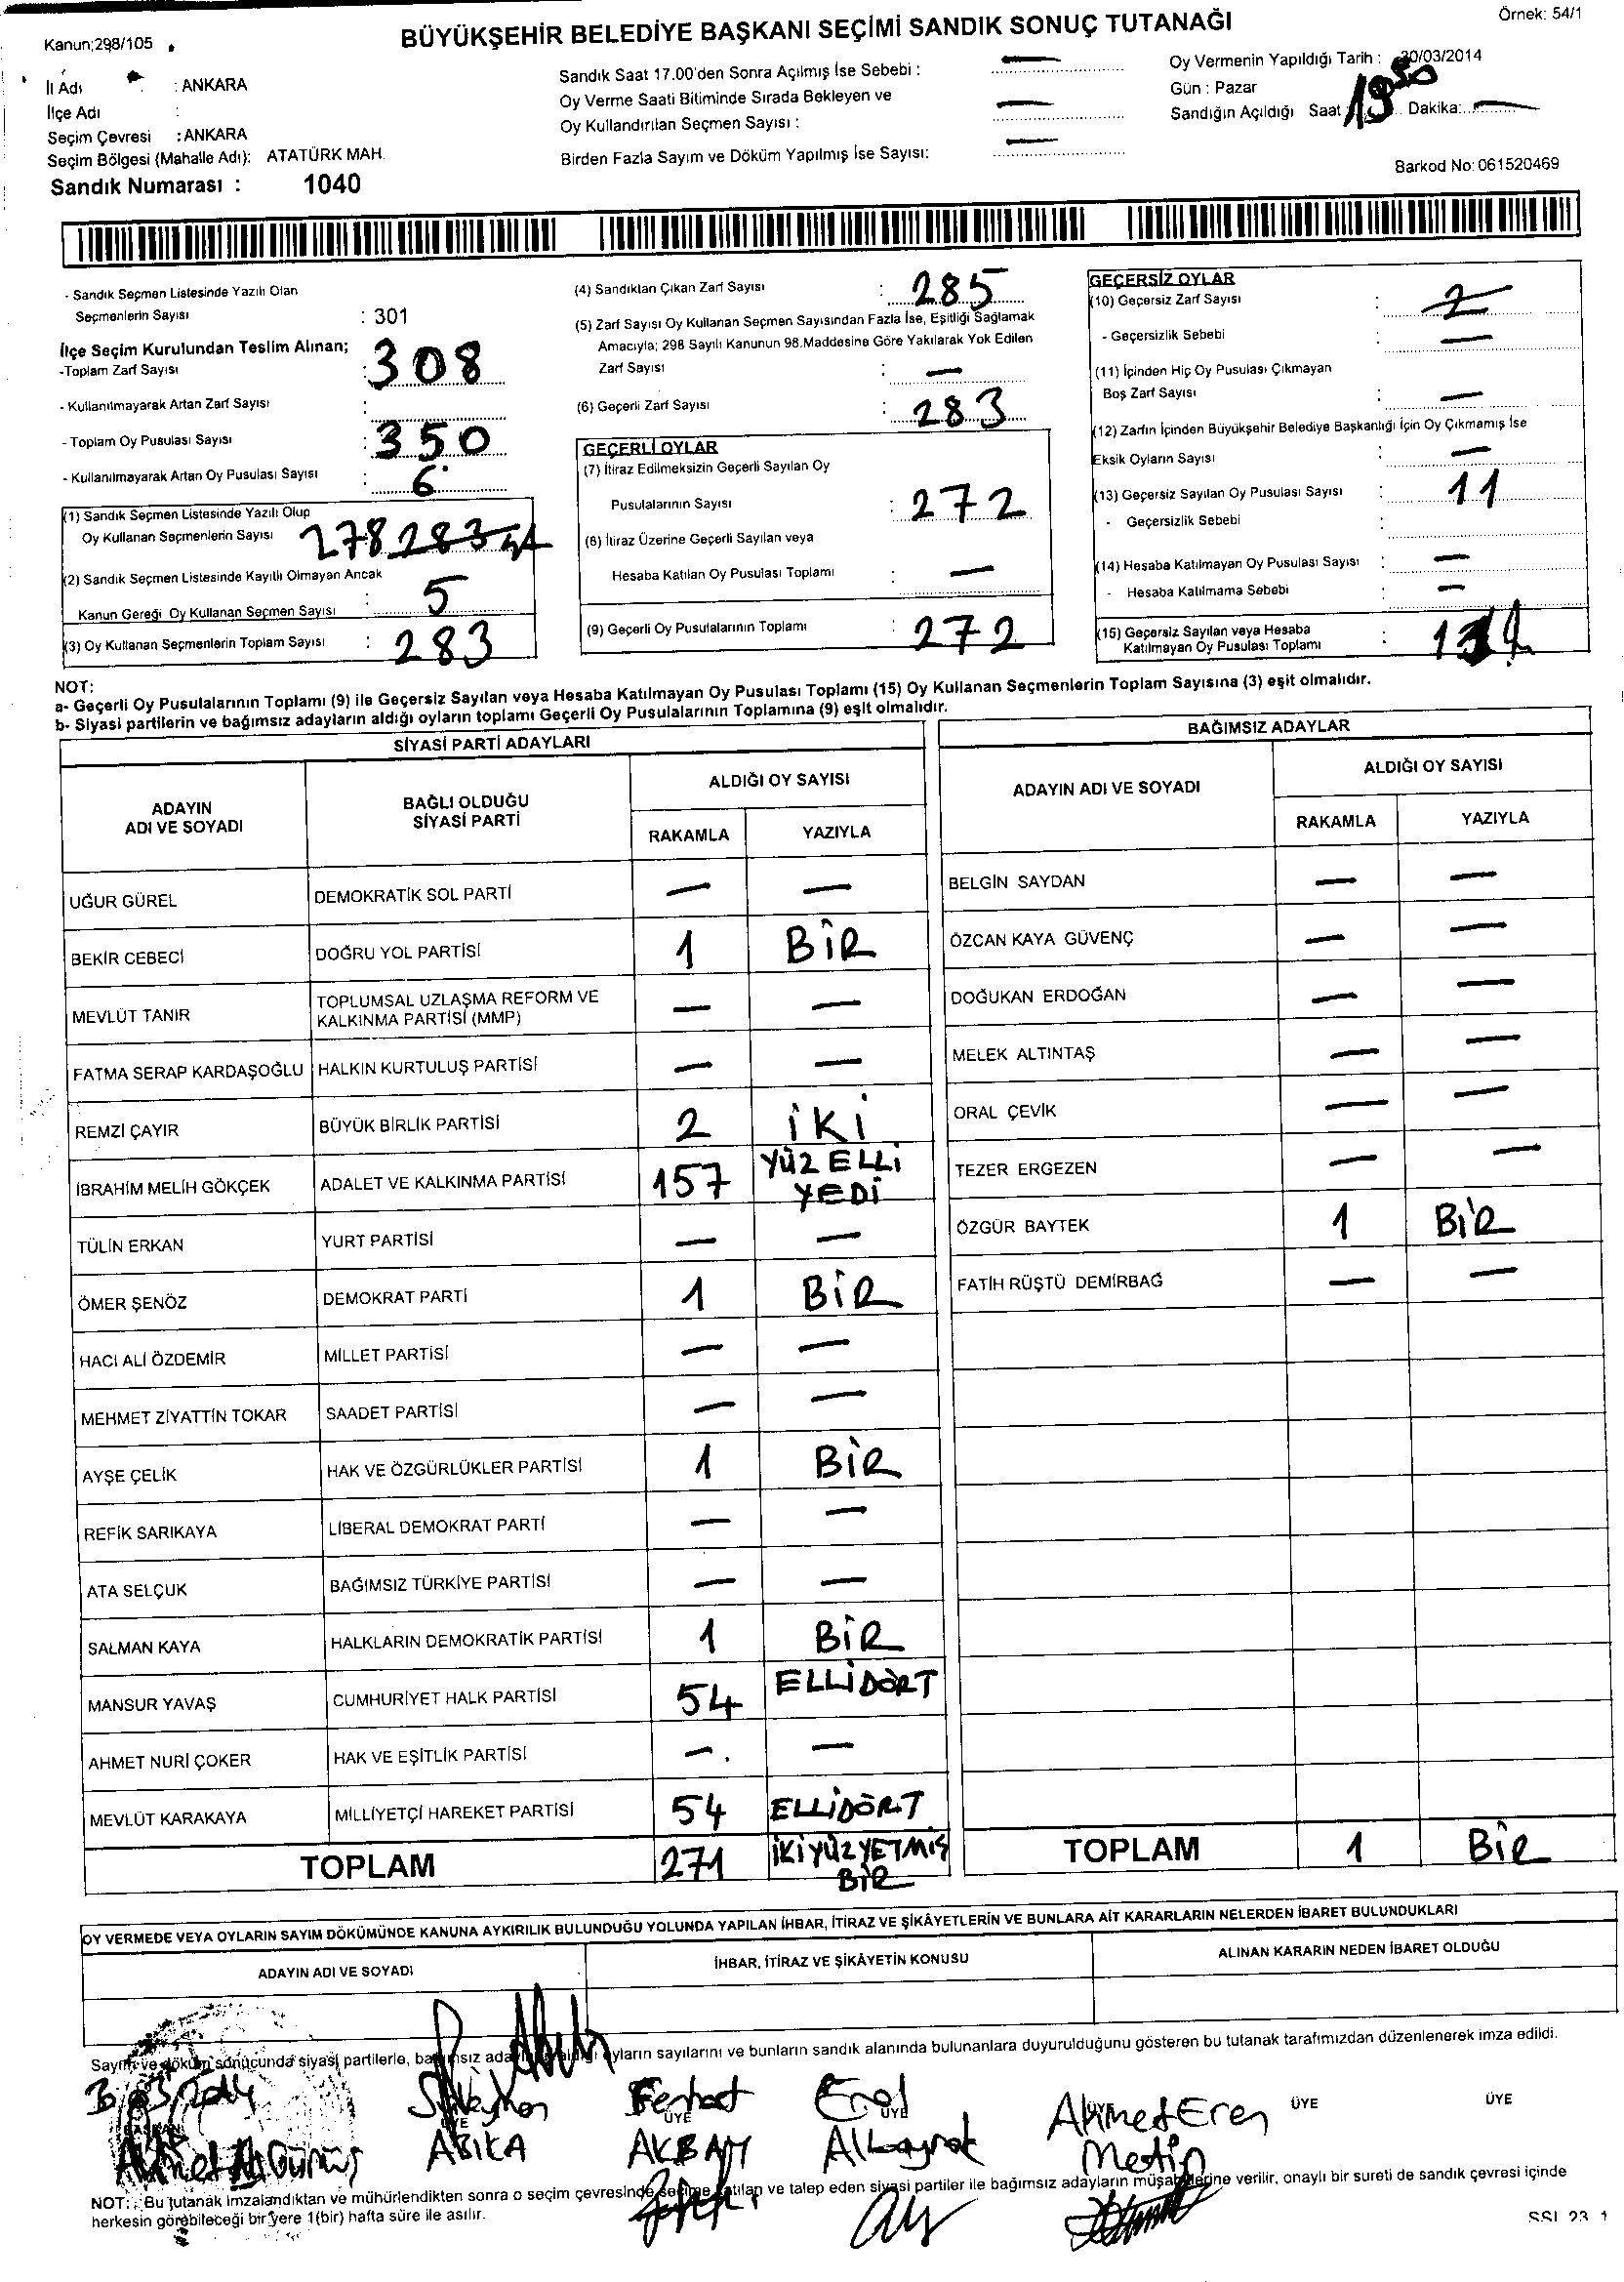 Örnek: 54/1
Kanun;298/105
BÜYÜKŞEHİR BELEDİYE BAŞKANI SEÇİMİ SANDIK SONUÇ TUTANAĞI
İli Adı : ANKARA
İlçe Adı :
Seçim Çevresi : ANKARA
Seçim Bölgesi (Mahalle Adı): ATATÜRK MAH.
Sandık Numarası : 1040
Sandık Saat 17.00'den Sonra Açılmış İse Sebebi : —
Oy Verme Saati Bitiminde Sırada Bekleyen ve
Oy Kullandırılan Seçmen Sayısı : —
Birden Fazla Sayım ve Döküm Yapılmış İse Sayısı: —
Oy Vermenin Yapıldığı Tarih : 30/03/2014
Gün : Pazar
Sandığın Açıldığı Saat Dakika: —
Barkod No: 061520469
- Sandık Seçmen Listesinde Yazılı Olan
Seçmenlerin Sayısı : 301
İlçe Seçim Kurulundan Teslim Alınan;
-Toplam Zarf Sayısı : 308
- Kullanılmayarak Artan Zarf Sayısı :
- Toplam Oy Pusulası Sayısı : 350
- Kullanılmayarak Artan Oy Pusulası Sayısı : 6
(1) Sandık Seçmen Listesinde Yazılı Olup
Oy Kullanan Seçmenlerin Sayısı 278 283
(2) Sandık Seçmen Listesinde Kayıtlı Olmayan Ancak
Kanun Gereği Oy Kullanan Seçmen Sayısı : 5
(3) Oy Kullanan Seçmenlerin Toplam Sayısı : 283
(4) Sandıktan Çıkan Zarf Sayısı : 285
(5) Zarf Sayısı Oy Kullanan Seçmen Sayısından Fazla İse, Eşitliği Sağlamak
Amacıyla; 298 Sayılı Kanunun 98.Maddesine Göre Yakılarak Yok Edilen
Zarf Sayısı : —
(6) Geçerli Zarf Sayısı : 283
GEÇERLİ OYLAR
(7) İtiraz Edilmeksizin Geçerli Sayılan Oy
Pusulalarının Sayısı : 272
(8) İtiraz Üzerine Geçerli Sayılan veya
Hesaba Katılan Oy Pusulası Toplamı : —
(9) Geçerli Oy Pusulalarının Toplamı : 272
GEÇERSİZ OYLAR
(10) Geçersiz Zarf Sayısı : 2
- Geçersizlik Sebebi : —
(11) İçinden Hiç Oy Pusulası Çıkmayan
Boş Zarf Sayısı : —
(12) Zarfın İçinden Büyükşehir Belediye Başkanlığı İçin Oy Çıkmamış İse
Eksik Oyların Sayısı : —
(13) Geçersiz Sayılan Oy Pusulası Sayısı : 11
- Geçersizlik Sebebi :
(14) Hesaba Katılmayan Oy Pusulası Sayısı : —
- Hesaba Katılmama Sebebi : —
(15) Geçersiz Sayılan veya Hesaba
Katılmayan Oy Pusulası Toplamı :
NOT:
a- Geçerli Oy Pusulalarının Toplamı (9) ile Geçersiz Sayılan veya Hesaba Katılmayan Oy Pusulası Toplamı (15) Oy Kullanan Seçmenlerin Toplam Sayısına (3) eşit olmalıdır.
b- Siyasi partilerin ve bağımsız adayların aldığı oyların toplamı Geçerli Oy Pusulalarının Toplamına (9) eşit olmalıdır.
SİYASİ PARTİ ADAYLARI
ADAYIN ADI VE SOYADI BAĞLI OLDUĞU SİYASİ PARTİ ALDIĞI OY SAYISI
RAKAMLA YAZIYLA
UĞUR GÜREL DEMOKRATİK SOL PARTİ — —
BEKİR CEBECİ DOĞRU YOL PARTİSİ 1 BİR
MEVLÜT TANIR TOPLUMSAL UZLAŞMA REFORM VE KALKINMA PARTİSİ (MMP) — —
FATMA SERAP KARDAŞOĞLU HALKIN KURTULUŞ PARTİSİ — —
REMZİ ÇAYIR BÜYÜK BİRLİK PARTİSİ 2 İKİ
İBRAHİM MELİH GÖKÇEK ADALET VE KALKINMA PARTİSİ 157 YÜZ ELLİ YEDİ
TÜLİN ERKAN YURT PARTİSİ — —
ÖMER ŞENÖZ DEMOKRAT PARTİ 1 BİR
HACI ALİ ÖZDEMİR MİLLET PARTİSİ — —
MEHMET ZİYATTİN TOKAR SAADET PARTİSİ — —
AYŞE ÇELİK HAK VE ÖZGÜRLÜKLER PARTİSİ 1 BİR
REFİK SARIKAYA LİBERAL DEMOKRAT PARTİ — —
ATA SELÇUK BAĞIMSIZ TÜRKİYE PARTİSİ — —
SALMAN KAYA HALKLARIN DEMOKRATİK PARTİSİ 1 BİR
MANSUR YAVAŞ CUMHURİYET HALK PARTİSİ 54 ELLİDÖRT
AHMET NURİ ÇOKER HAK VE EŞİTLİK PARTİSİ — —
MEVLÜT KARAKAYA MİLLİYETÇİ HAREKET PARTİSİ 54 ELLİDÖRT
TOPLAM 271 İKİYÜZYETMİŞ BİR
BAĞIMSIZ ADAYLAR
ADAYIN ADI VE SOYADI ALDIĞI OY SAYISI
RAKAMLA YAZIYLA
BELGİN SAYDAN — —
ÖZCAN KAYA GÜVENÇ — —
DOĞUKAN ERDOĞAN — —
MELEK ALTINTAŞ — —
ORAL ÇEVİK — —
TEZER ERGEZEN — —
ÖZGÜR BAYTEK 1 BİR
FATİH RÜŞTÜ DEMİRBAĞ — —
TOPLAM 1 BİR
OY VERMEDE VEYA OYLARIN SAYIM DÖKÜMÜNDE KANUNA AYKIRILIK BULUNDUĞU YOLUNDA YAPILAN İHBAR, İTİRAZ VE ŞİKÂYETLERİN VE BUNLARA AİT KARARLARIN NELERDEN İBARET BULUNDUKLARI
ADAYIN ADI VE SOYADI İHBAR, İTİRAZ VE ŞİKÂYETİN KONUSU ALINAN KARARIN NEDEN İBARET OLDUĞU
Sayım ve döküm sonucunda siyasi partilerle, bağımsız oyların sayılarını ve bunların sandık alanında bulunanlara duyurulduğunu gösteren bu tutanak tarafımızdan düzenlenerek imza edildi.
Ferhat Erol Ahmet Eren ÜYE ÜYE
ABIKA AKBAŞ Albayrak Metin
NOT: Bu tutanak imzalandıktan ve mühürlendikten sonra o seçim çevresinde seçime katılan ve talep eden siyasi partiler ile bağımsız adayların müşahitlerine verilir, onaylı bir sureti de sandık çevresi içinde
herkesin görebileceği bir yere 1(bir) hafta süre ile asılır.